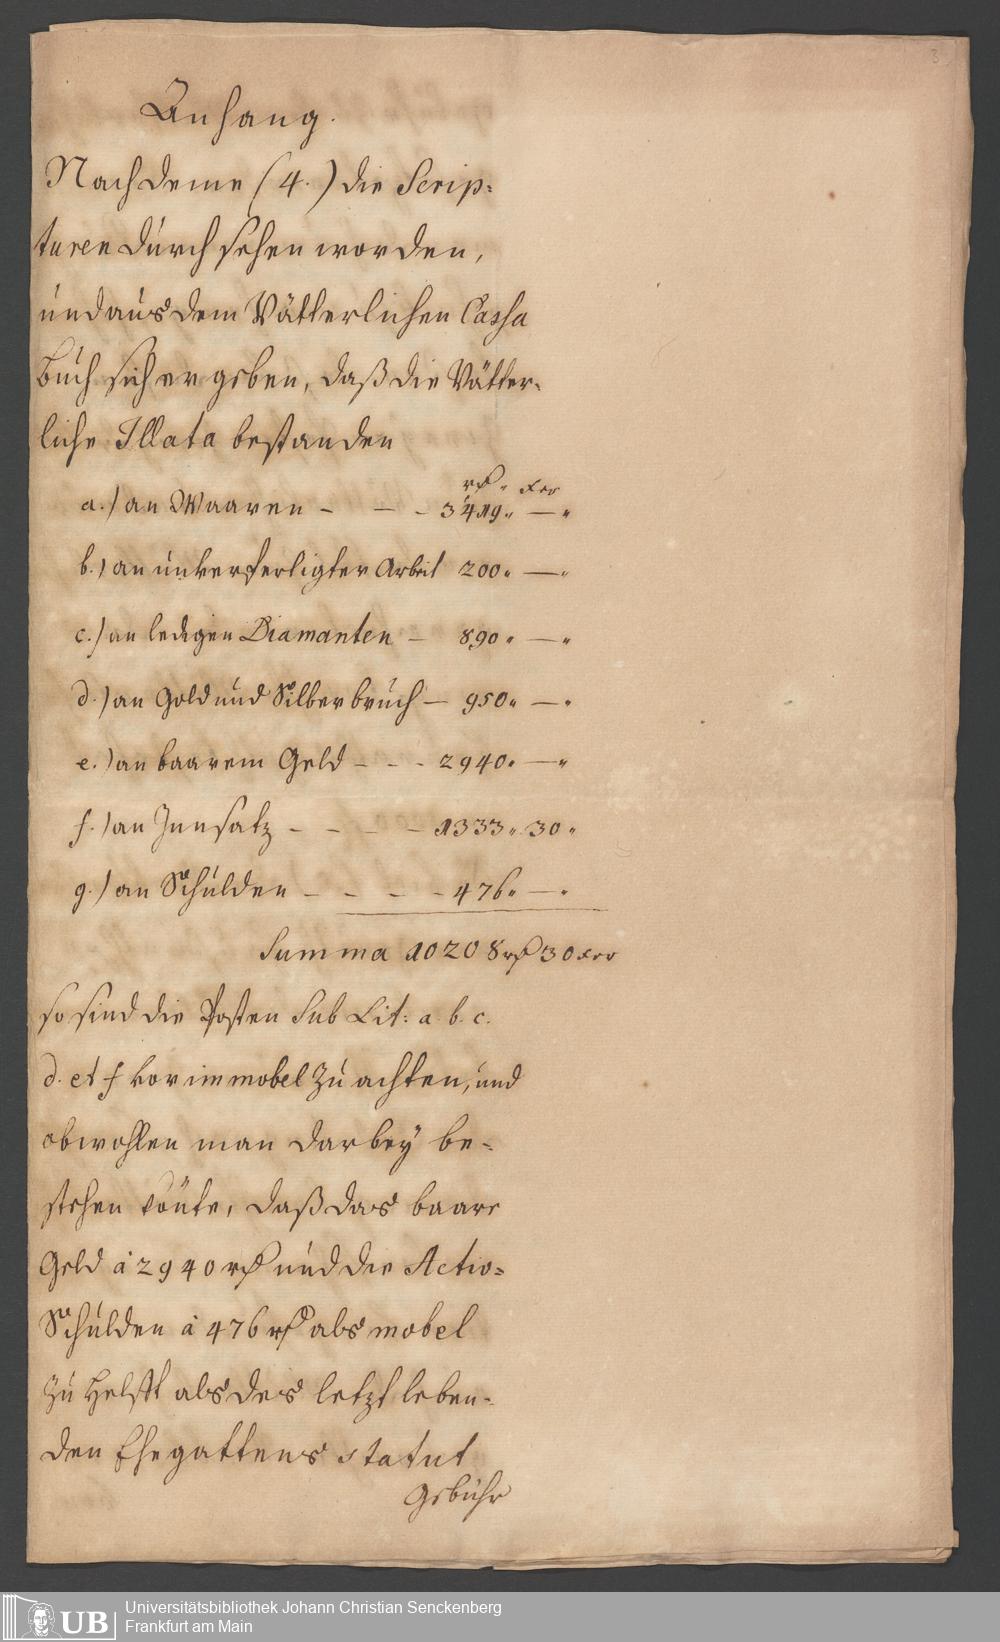 3
Anhang.
Nachdeme (4.) die Scrip=
turen durchsehen worden,
und aus dem Vätterlichen Cassa
Buch sich ergeben, daß die Vätter=
liche Illata bestanden
rf. Xer
a.) an Waaren - - - 3419. — "
b.) an unverfertigter Arbeit 200. — "
c.) an ledigen Diamanten — 890. — "
d.) an Gold und Silberbruch — 950. — "
e.) an baarem Geld - - - 2940. — "
f.) an Innsatz - - - - 1333. 30 "
g.) an Schulden - - - - 476. — "
Summa 10208 rf 30 Xer
so sind die Posten Sub Lit: a. b. c.
d. et f vor immobel zu achten, und
obwohlen man darbey be=
stehen könte, daß das baare
Geld à 2940 rf und die Activ=
Schulden à 476 rf als mobel
zu Helfft als des letzt leben=
den Ehegattens statut
Gebühr
UB
Universitätsbibliothek Johann Christian Senckenberg
Frankfurt am Main